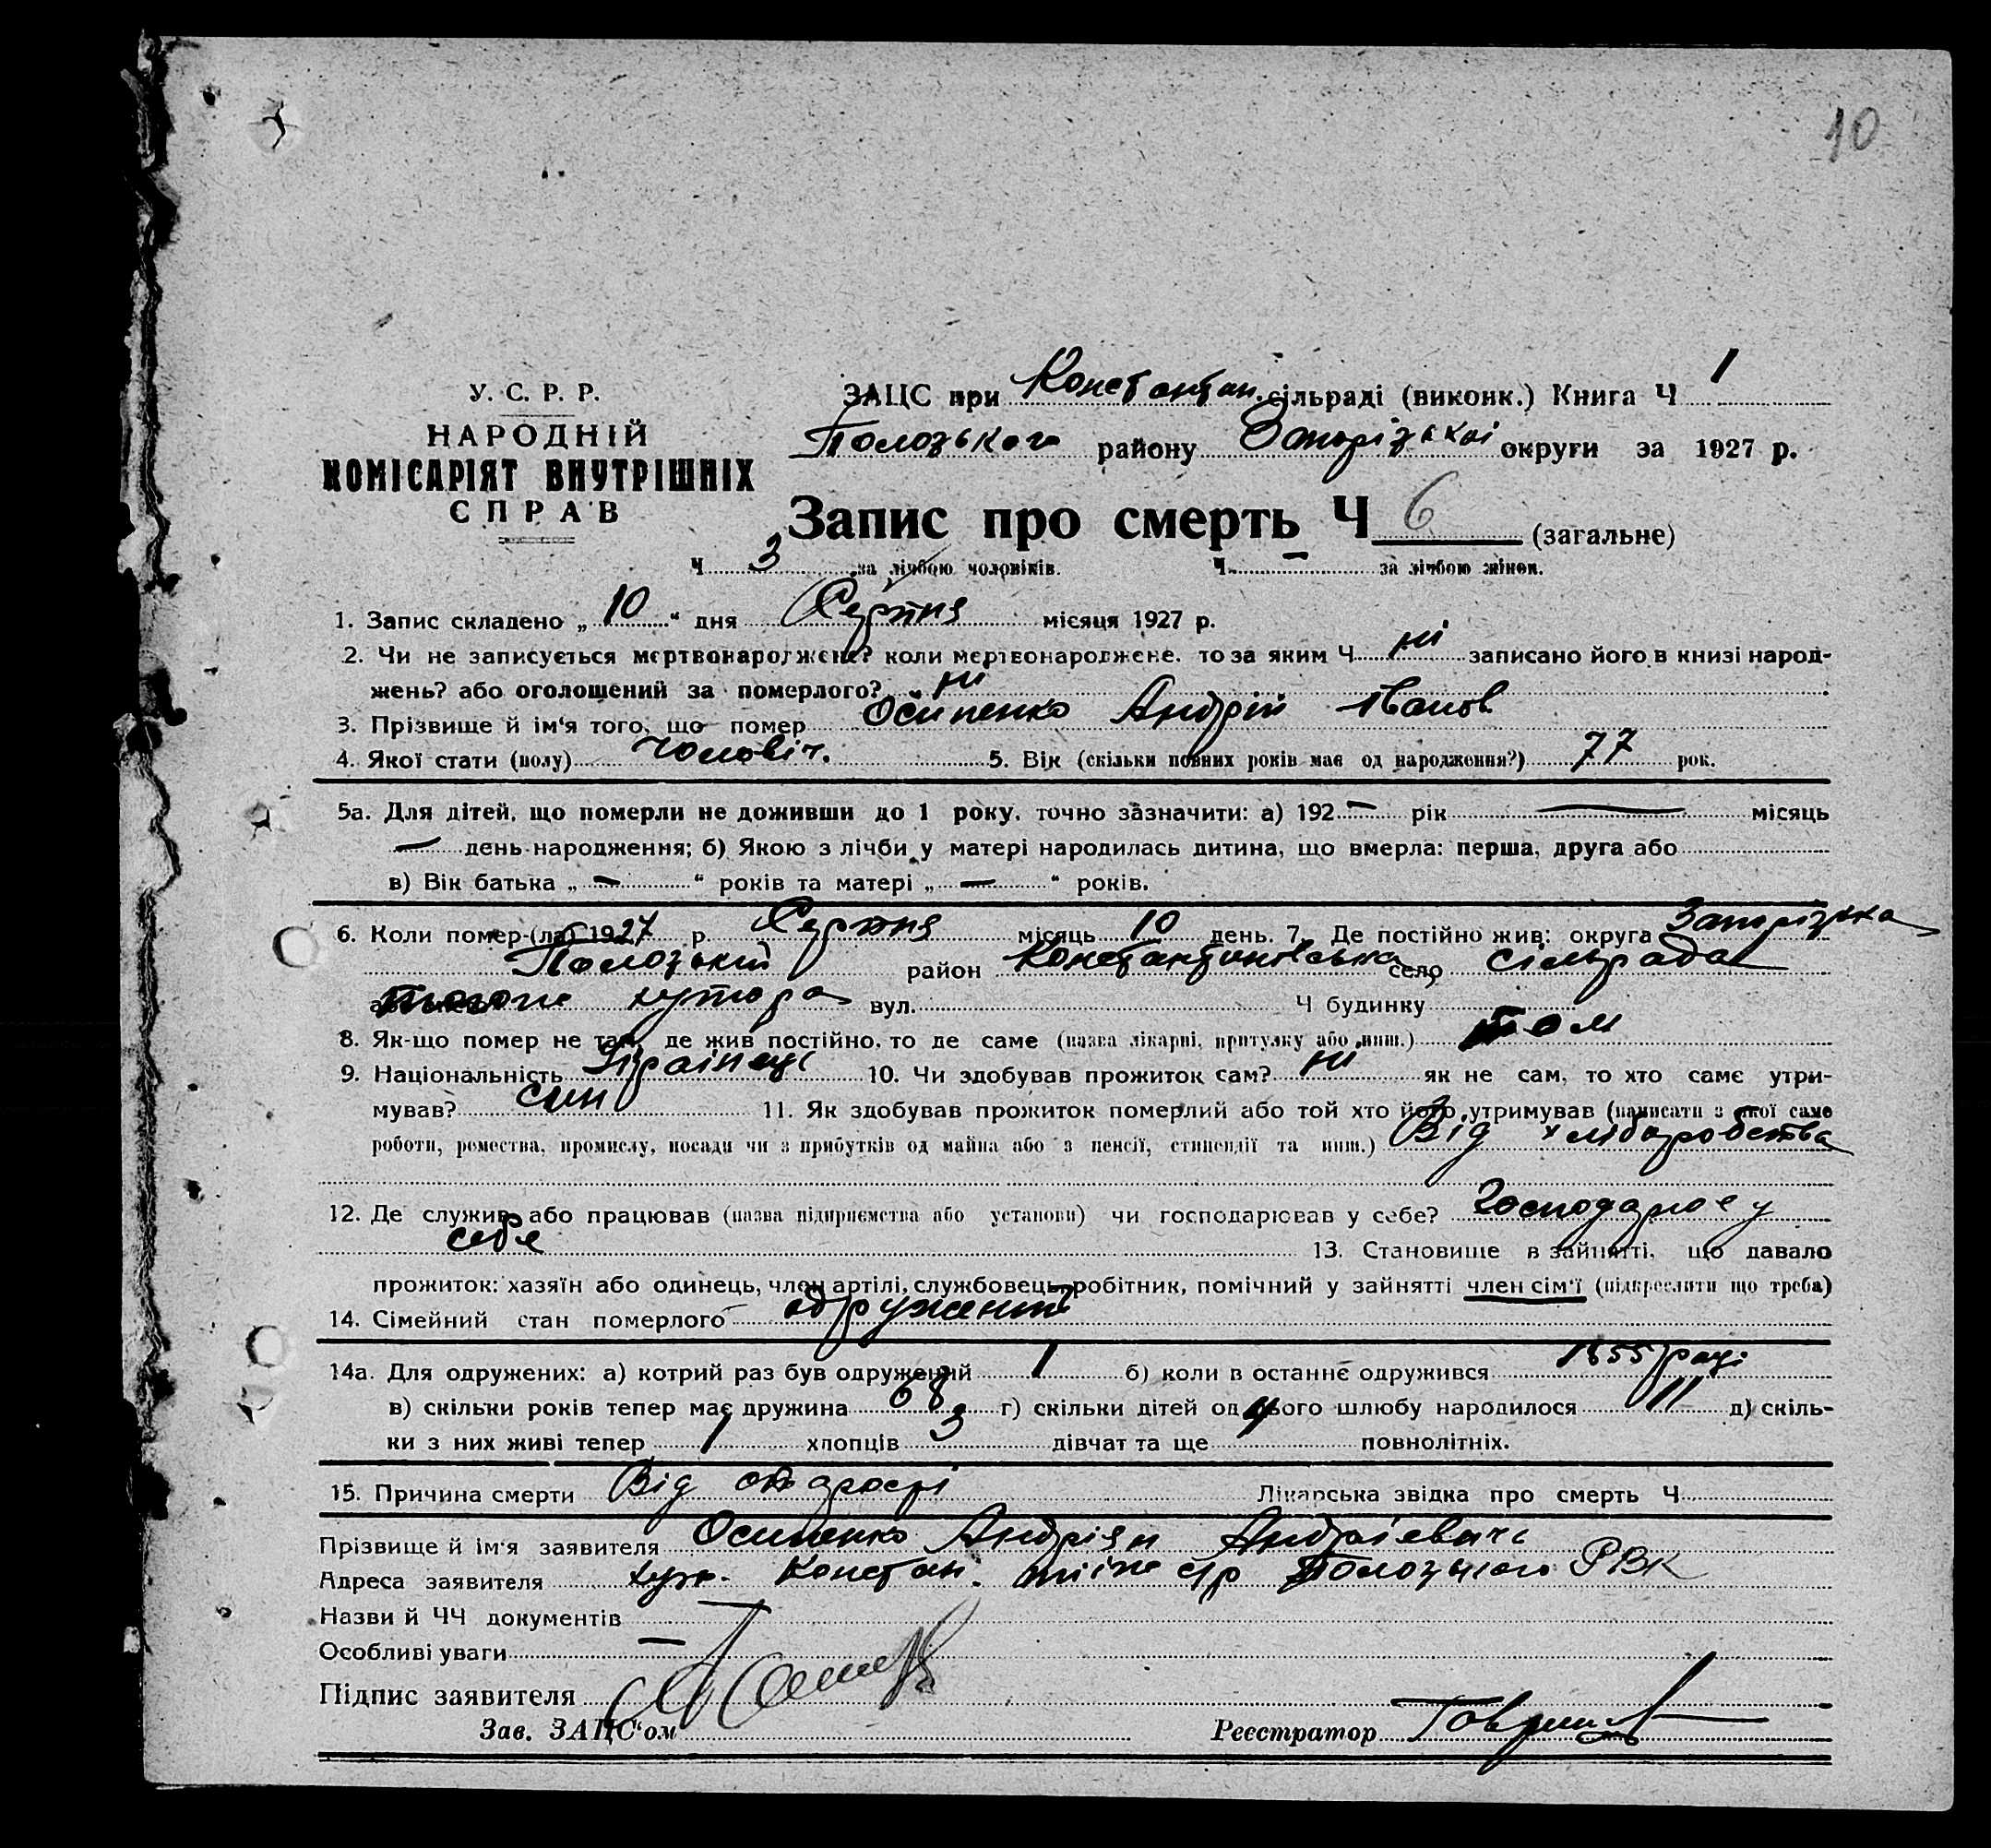 10
У. С. Р. Р.
НАРОДНІЙ
КОМІСАРІЯТ ВНУТРІШНІХ
СПРАВ
ЗАЦС при Константан. сільраді (виконк.) Книга Ч 1
Полозького району Запорізької округи за 1927 р.
Запис про смерть Ч 6 (загальне)
Ч 3 за лічбою чоловіків. Ч — за лічбою жінок.
1. Запис складено „ 10 “ дня Серпня місяця 1927 р.
2. Чи не записується мертвонароджене? коли мертвонароджене, то за яким Ч ні записано його в книзі народ-
жень? або оголошений за померлого? ні
3. Прізвище й ім'я того, що помер Осипенко Андрій Іванов
4. Якої стати (полу) чоловіч. 5. Вік (скільки повних років має од народження?) 77 рок.
5а. Для дітей, що померли не доживши до 1 року, точно зазначити: а) 192 — рік — місяць
— день народження; б) Якою з лічби у матері народилась дитина, що вмерла: перша, друга або
в) Вік батька „ — “ років та матері „ — “ років.
6. Коли помер-(ла) 1927 р. Серпня місяць 10 день. 7. Де постійно жив: округа Запорізька
Полозький район Константинівська село сільрада
хутора вул. Ч будинку
8. Як-що помер не там, де жив постійно, то де саме (назва лікарні, притулку або инш.) там
9. Національність Українець 10. Чи здобував прожиток сам? ні як не сам, то хто саме утри-
мував? син 11. Як здобував прожиток померлий або той хто його утримував (написати з якої саме
роботи, ремества, промислу, посади чи з прибутків од майна або з пенсії, стипендії та инш.) Від хліборобства
12. Де служив або працював (назва підприємства або установи) чи господарював у себе? Господарює у
себе 13. Становище в зайнятті, що давало
прожиток: хазяїн або одинець, член артілі, службовець, робітник, помічний у зайнятті член сім'ї (підкреслити що треба)
14. Сімейний стан померлого одружений
14а. Для одружених: а) котрий раз був одружений 1 б) коли в останнє одружився 1855 році
в) скільки років тепер має дружина 68 г) скільки дітей од цього шлюбу народилося 11 д) скіль-
ки з них живі тепер 1 хлопців 3 дівчат та ще 4 повнолітніх.
15. Причина смерти Від старості Лікарська звідка про смерть Ч
Прізвище й ім'я заявителя Осипенко Андріян Андрієвичь
Адреса заявителя хут. Констан. с/р Полозького РВК
Назви й ЧЧ документів
Особливі уваги —
Підпис заявителя
Зав. ЗАЦС'ом Реєстратор